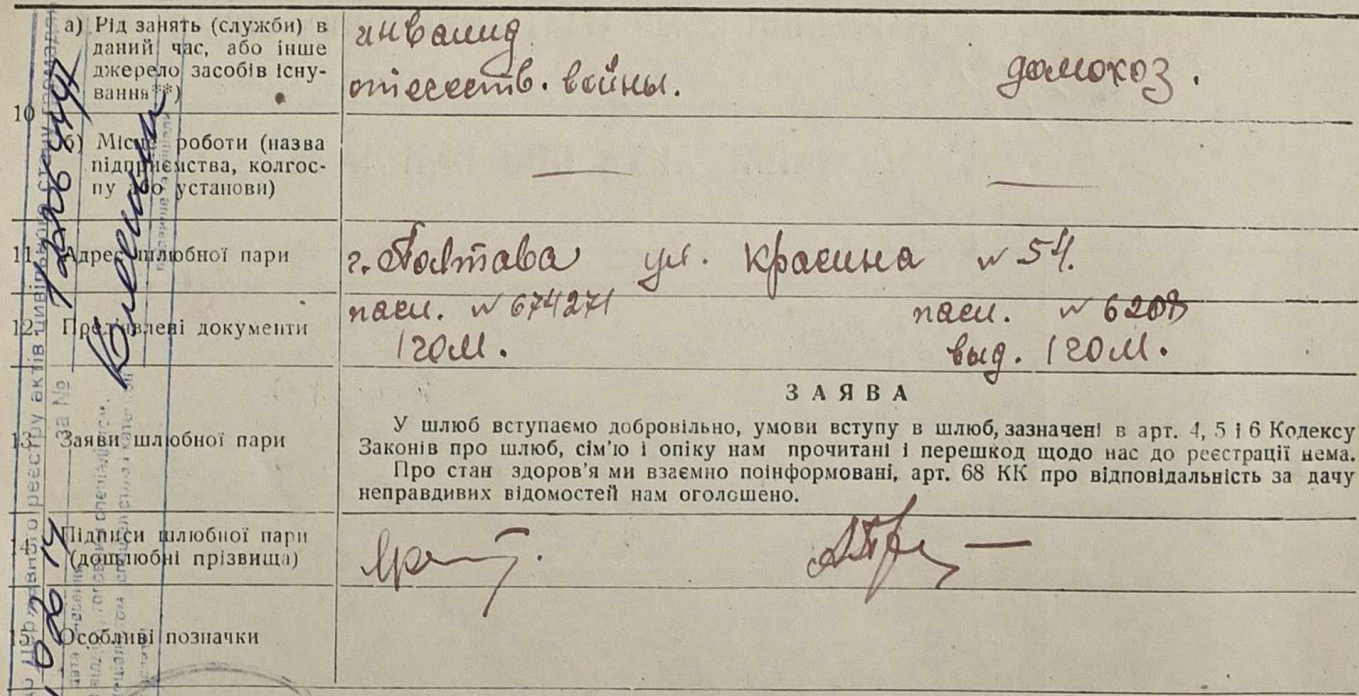 а) Рід занять (служби) в
даний час, або інше
джерело засобів існу-
вання**)
инвалид
отечеств. войны.
домохоз.
10
б) Місце роботи (назва
підприємства, колгос-
пу або установи)
—
—
11. Адрес шлюбної пари
г. Полтава ул. Красина № 54.
12. Пред'явлені документи
пасп. № 674271
1 гом.
пасп. № 6208
выд. 1 гом.
13. Заяви шлюбної пари
ЗАЯВА
У шлюб вступаємо добровільно, умови вступу в шлюб, зазначені в арт. 4, 5 і 6 Кодексу
Законів про шлюб, сім'ю і опіку нам прочитані і перешкод щодо нас до реєстрації нема.
Про стан здоров'я ми взаємно поінформовані, арт. 68 КК про відповідальність за дачу
неправдивих відомостей нам оголошено.
14. Підписи шлюбної пари
(дошлюбні прізвища)
15. Особливі позначки
Державного реєстру актів цивільного стану громадян
за №